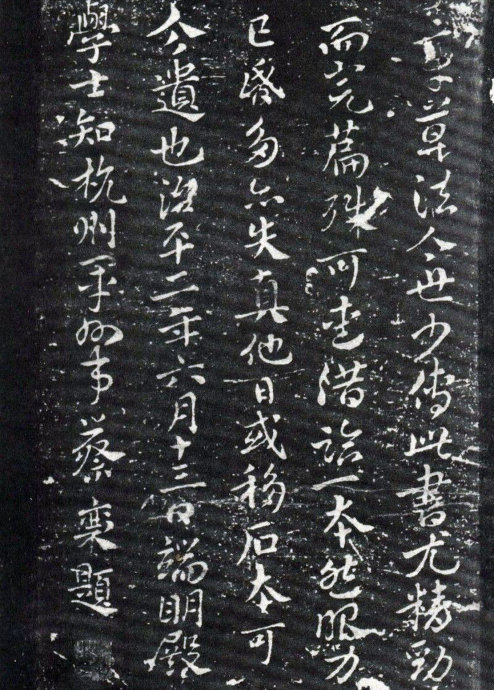 章草法今世少傳此書尤精勁
而完篇殊可愛借臨一本然眼力
已昏多亦失真他日或移石本可
今遺也治平二年六月十三日端明殿
學士知杭州軍州事蔡襄題